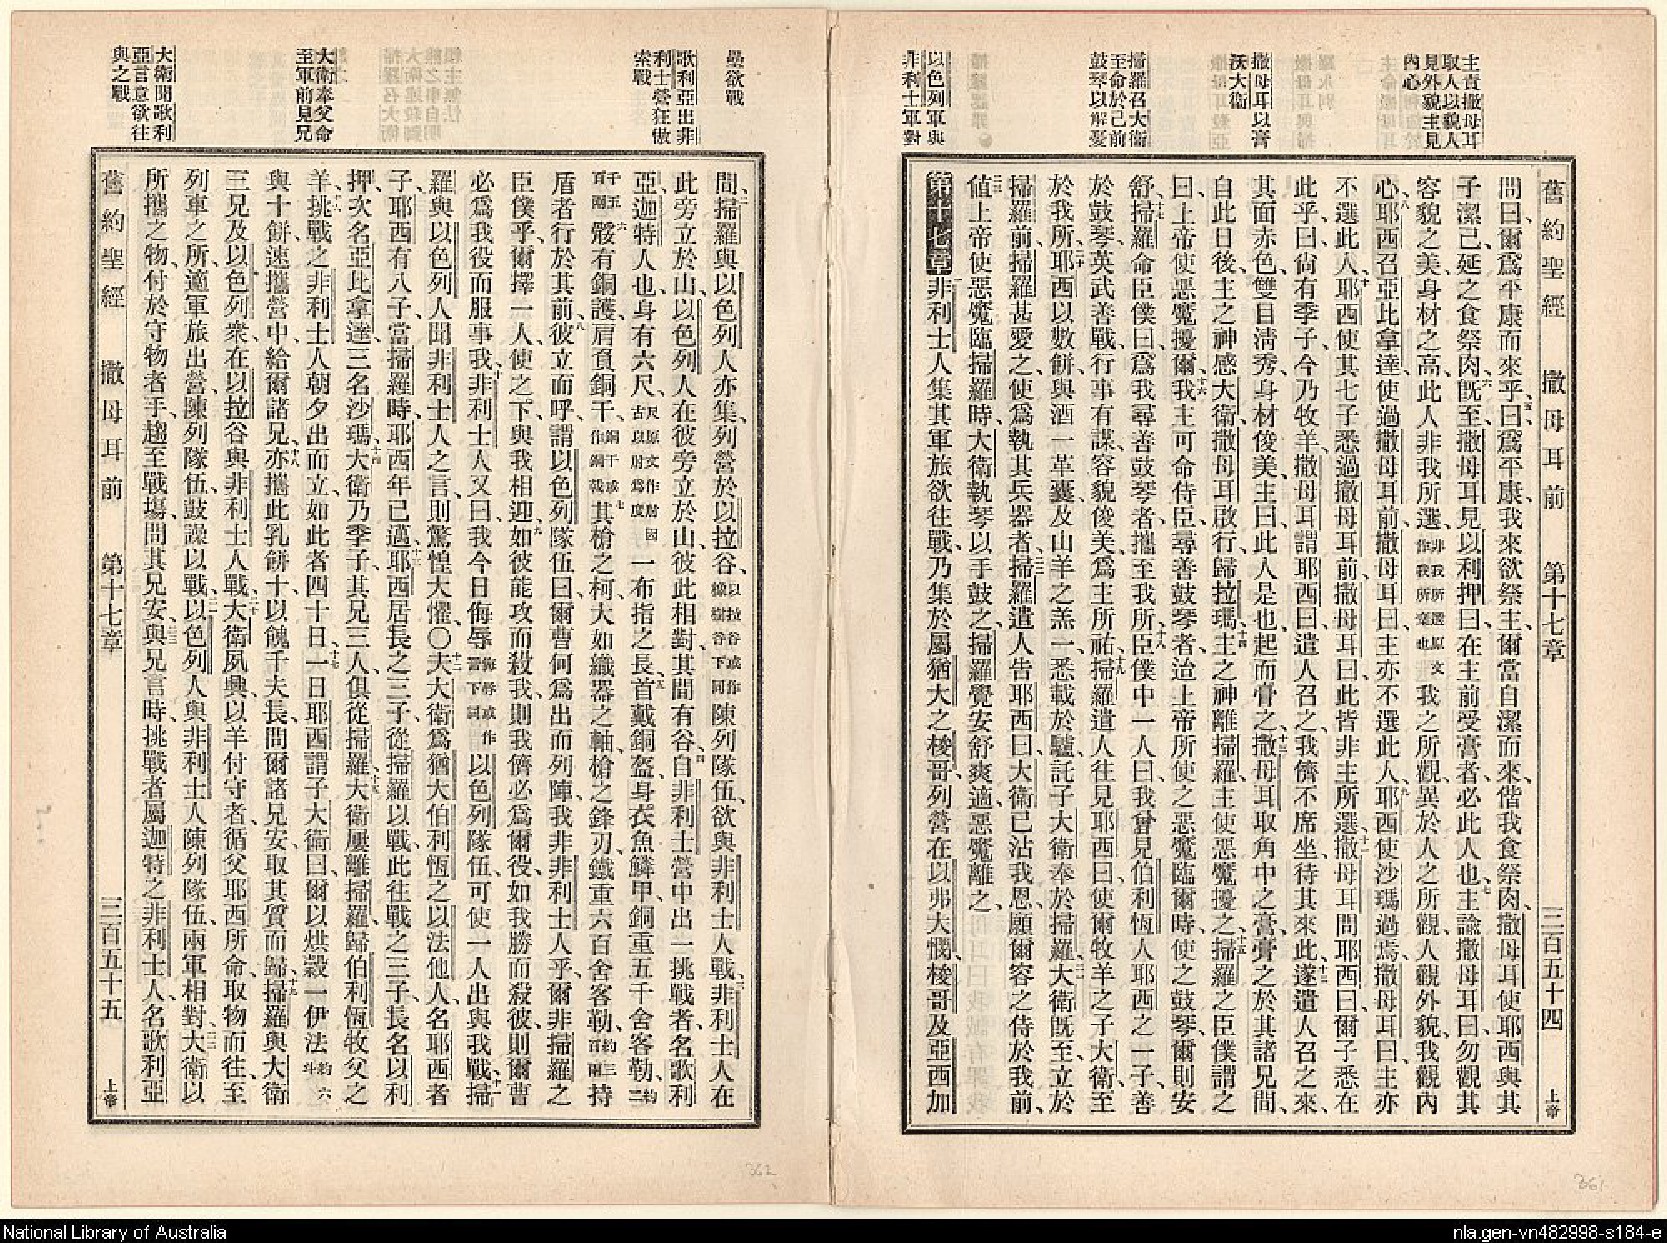 主責撒母耳
取人以貌人
見外貌主見
內心
撒母耳以膏
沃大衛
掃羅召大衛
至命於己前
鼓琴以解憂
以色列軍與
非利士軍對
舊約聖經 撒母耳前 第十七章 三百五十四 上帝
問曰爾爲平康而來乎曰爲平康我來欲祭主爾當自潔而來偕我食祭肉撒母耳使耶西與其
子潔己延之食祭肉既至撒母耳見以利押曰在主前受膏者必此人也主諭撒母耳曰勿觀其
容貌之美身材之高此人非我所選非我所選原文作我所棄也我之所觀異於人之所觀人觀外貌我觀內
心耶西召亞比拿達使過撒母耳前撒母耳曰主亦不選此人耶西使沙瑪過焉撒母耳曰主亦
不選此人耶西使其七子悉過撒母耳前撒母耳曰此皆非主所選撒母耳問耶西曰爾子悉在
此乎曰尚有季子今乃牧羊撒母耳謂耶西曰遣人召之我儕不席坐待其來此遂遣人召之來
其面赤色雙目清秀身材俊美主曰此人是也起而膏之撒母耳取角中之膏膏之於其諸兄間
自此日後主之神感大衛撒母耳啟行歸拉瑪主之神離掃羅主使惡魔擾之掃羅之臣僕謂之
曰上帝使惡魔擾爾我主可命侍臣尋善鼓琴者迨上帝所使之惡魔臨爾時使之鼓琴爾則安
舒掃羅命臣僕曰爲我尋善鼓琴者攜至我所臣僕中一人曰我曾見伯利恆人耶西之一子善
於鼓琴英武善戰行事有謀容貌俊美爲主所祐掃羅遣人往見耶西曰使爾牧羊之子大衛至
於我所耶西以數餅與酒一革囊及山羊之羔一悉載於驢託子大衛奉於掃羅大衛既至立於
掃羅前掃羅甚愛之使爲執其兵器者掃羅遣人告耶西曰大衛已沾我恩願爾容之侍於我前
值上帝使惡魔臨掃羅時大衛執琴以手鼓之掃羅覺安舒爽適惡魔離之
第十七章非利士人集其軍旅欲往戰乃集於屬猶大之梭哥列營在以弗大憫梭哥及亞西加
壘欲戰
歌利亞出非
利士營狂傲
索戰
大衛奉父命
至軍前見兄
大衛聞歌利
亞言意欲往
與之戰
間掃羅與以色列人亦集列營於以拉谷以拉谷或作橡樹谷下同陳列隊伍欲與非利士人戰非利士人在
此旁立於山以色列人在彼旁立於山彼此相對其間有谷自非利士營中出一挑戰者名歌利
亞迦特人也身有六尺尺原文作肘國古以肘爲度一布指之長首戴銅盔身衣魚鱗甲銅重五千舍客勒約二
千五百兩骽有銅護肩負銅干銅干或作銅戟其槍之柯大如織器之軸槍之鋒刃鐵重六百舍客勒約三百兩持
盾者行於其前彼立而呼謂以色列隊伍曰爾曹何爲出而列陣我非非利士人乎爾非掃羅之
臣僕乎爾擇一人使之下與我相迎如彼能攻而殺我則我儕必爲爾役如我勝而殺彼則爾曹
必爲我役而服事我非利士人又曰我今日侮辱侮辱或作詈下同以色列隊伍可使一人出與我戰掃
羅與以色列人聞非利士人之言則驚惶大懼〇夫大衛爲猶大伯利恆之以法他人名耶西者
子耶西有八子當掃羅時耶西年已邁耶西居長之三子從掃羅以戰此往戰之三子長名以利
押次名亞比拿達三名沙瑪大衛乃季子其兄三人俱從掃羅大衛屢離掃羅歸伯利恆牧父之
羊挑戰之非利士人朝夕出而立如此者四十日一日耶西謂子大衛曰爾以烘穀一伊法約六斗
與十餅速攜營中給爾諸兄亦攜此乳餅十以餽千夫長問爾諸兄安取其質而歸掃羅與大衛
三兄及以色列眾在以拉谷與非利士人戰大衛夙興以羊付守者循父耶西所命取物而往至
列車之所適軍旅出營陳列隊伍鼓譟以戰以色列人與非利士人陳列隊伍兩軍相對大衛以
所攜之物付於守物者手趨至戰場問其兄安與兄言時挑戰者屬迦特之非利士人名歌利亞
舊約聖經 撒母耳前 第十七章 三百五十五 上帝
362
361
National Library of Australia
nla.gen-vn482998-s184-e